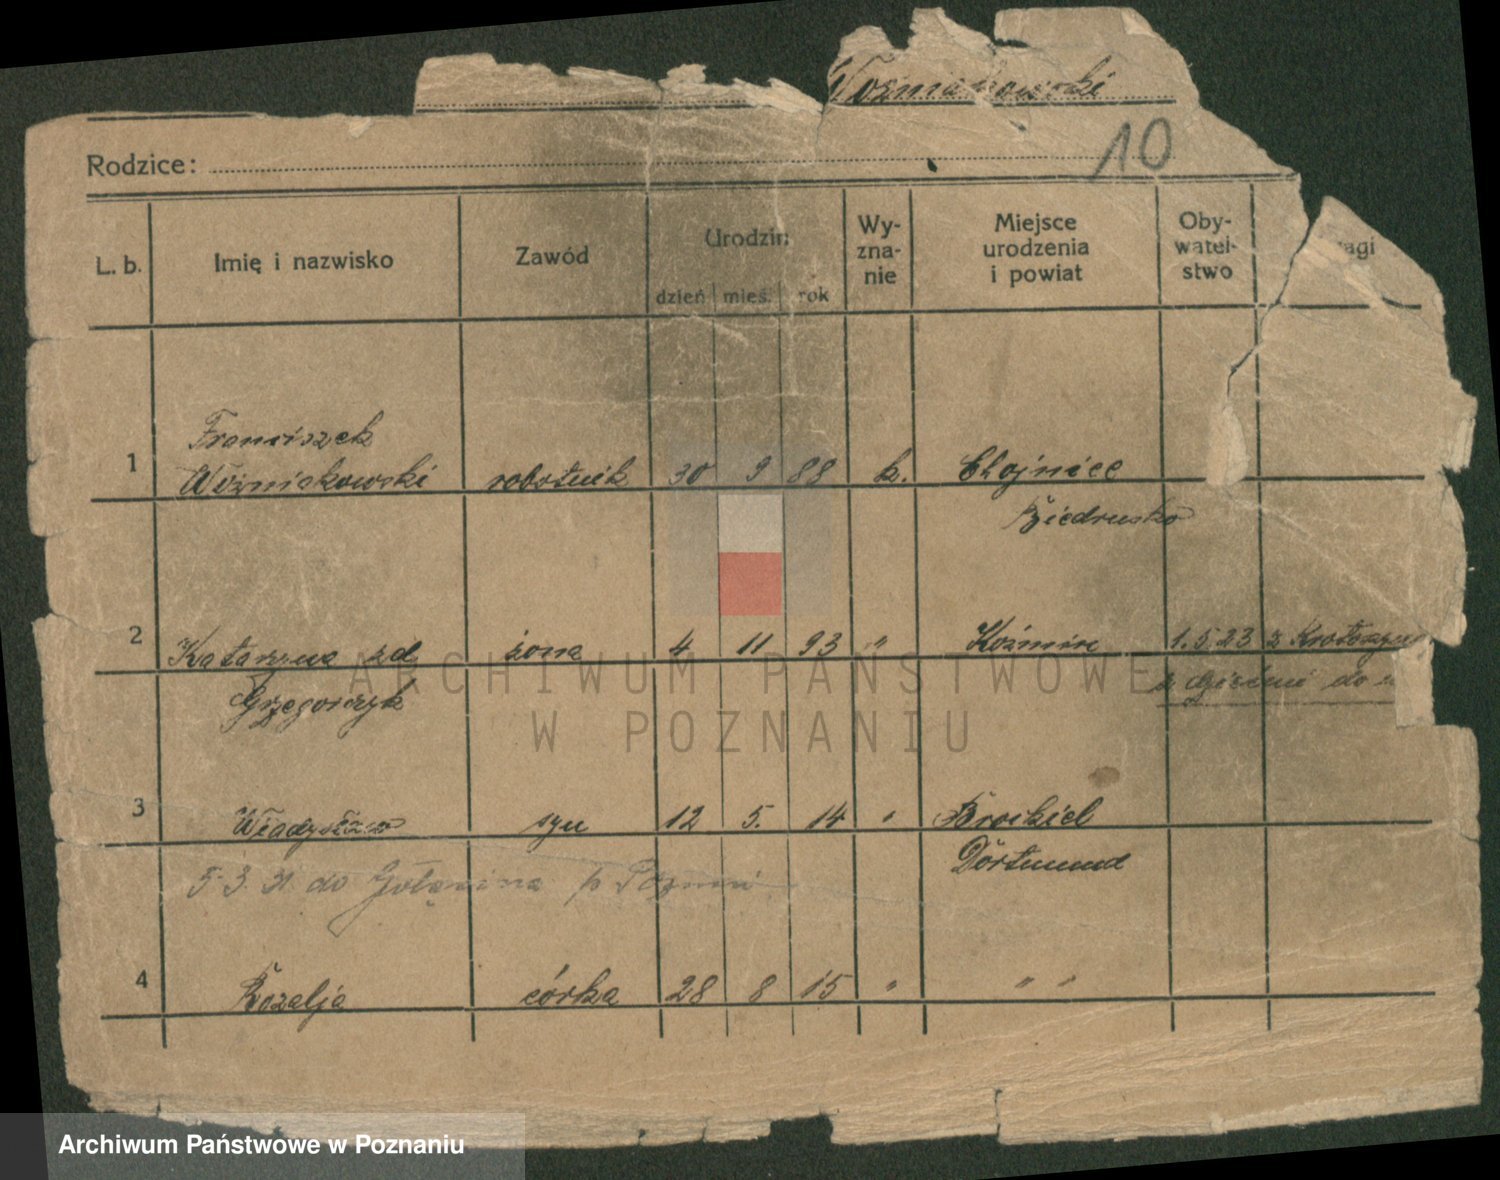 Woźniakowski
10
Rodzice:
L. b. Imię i nazwisko Zawód Urodzin Wy-zna-nie Miejsce urodzenia i powiat Oby-watel-stwo agi
dzień mieś. rok
Franciszek
1 Woźniakowski robotnik 30 9 88 k. Chojnice
Biedrusko
2 Katarzyna zd żona 4 11 93 " Koźmin 1.5.23 z Krotoszyna
Grzegorczyk do
3 Władysław syn 12 5. 14 " Brockiel
Dortmund
5.3.31. do Gołęcina p. Poznań
4 Rozalja córka 28 8 15 " " "
ARCHIWUM PAŃSTWOWE
W POZNANIU
Archiwum Państwowe w Poznaniu